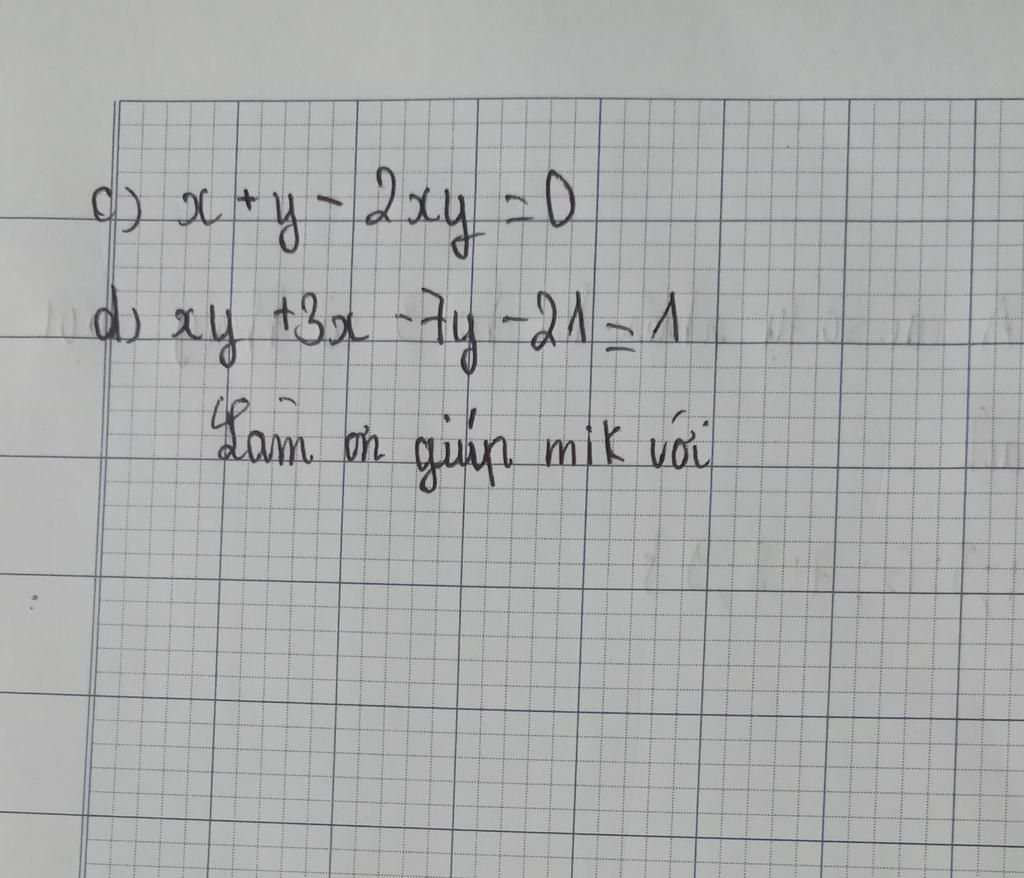 c) x + y - 2xy = 0
d) xy + 3x - 7y - 21 = 1
Làm ơn giúp mik với